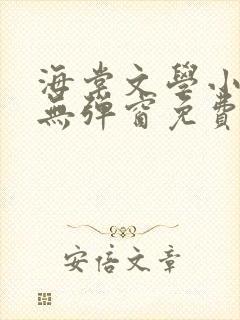 海棠文學小
無彈窗免費
安倍文章